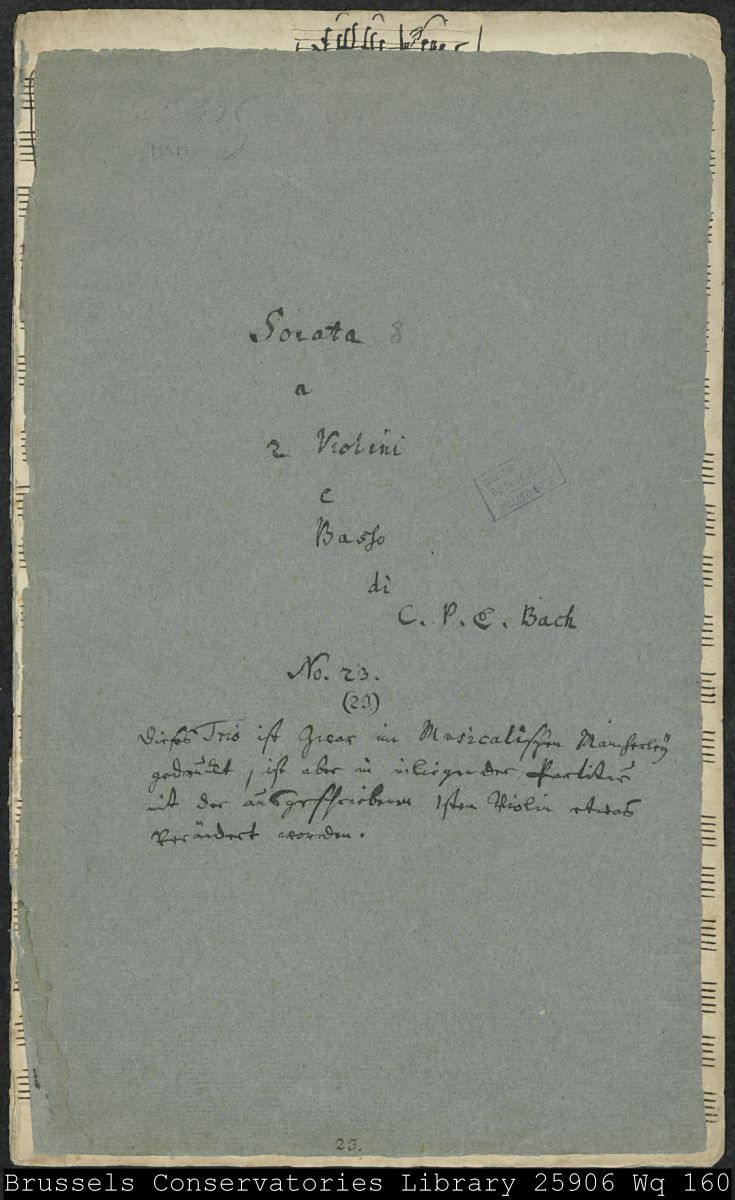 Sonata 8
a
2 Violini
e
Basso
di
C. P. E. Bach
No. 23.
(23)
Dieses Trio ist zwar im Musicalischen Mancherley
gedruckt, ist aber in inliegender Partitur
mit der ausgeschriebenen 1sten Violin etwas
verändert worden.
23.
Brussels Conservatories Library 25906 Wq 160